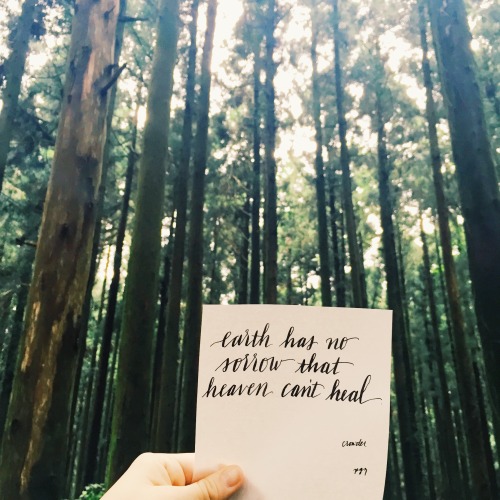 earth has no
sorrow that
heaven can't heal
crowder